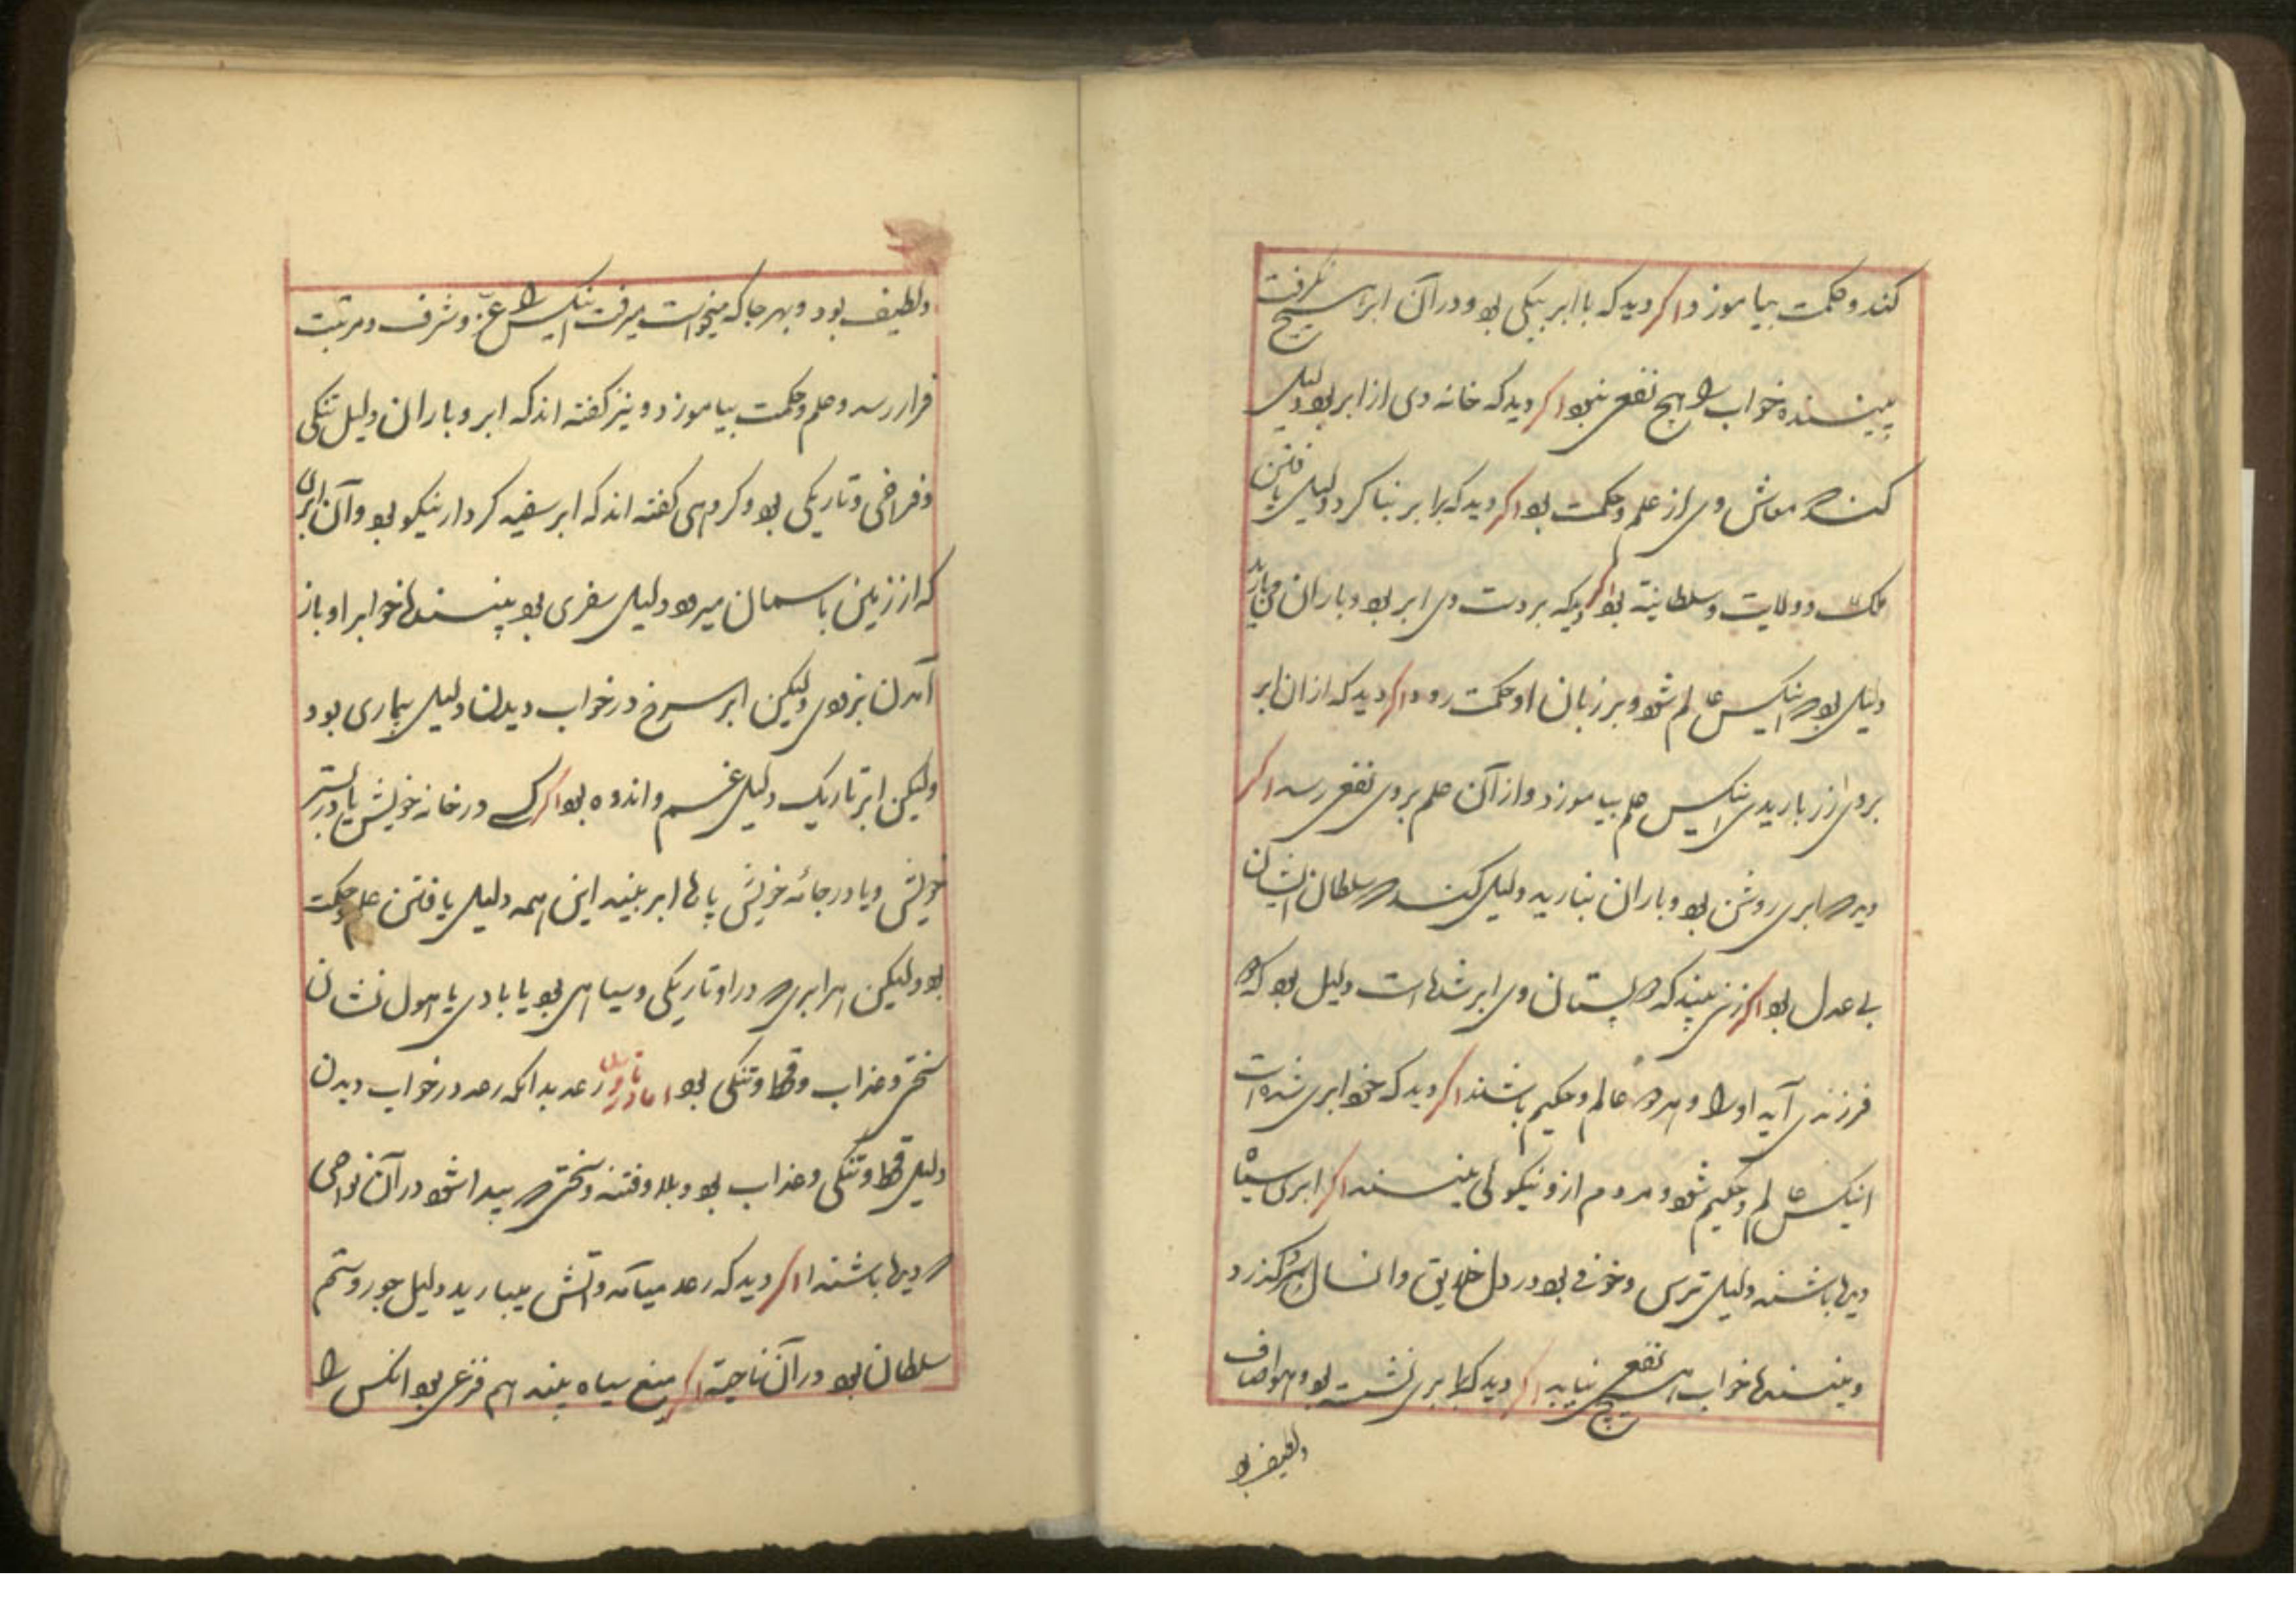 کند و حکمت بیاموزد و اگر دید که با ابر یکی بود و در آن ابراسیح نگرفت
بیننده خواب را هیچ نفعی نبود اگر دید که خانه وی از ابر بود دلیل
کند که معاش وی از علم و حکمت بود اگر دید که بر ابر بنا کرد دلیل یافتن
ملک و ولایت و سلطانیة بود اگر دید که بر دست وی ابر بود و باران می‌بارید
دلیل بود که اینکس عالم شود و بر زبان او حکمت رود و اگر دید که از ان ابر
بر وی زر باریدی اینکس علم بیاموزد و از آن علم بر وی نفع رسد اگر
دید که ابری روشن بود و باران نبارید دلیل کند که سلطان ایشان
بی عدل بود اگر زنی بیند که پستان وی ابر شده است دلیل بود که دو
فرزندی آید او را و هر دو عالم و حکیم باشند اگر دید که خود ابری شده است
اینکس عالم و حکیم شود و مردم از و نیکوئی بینند اگر ابری سیاه
دیده باشند دلیل ترس و خوف بود در دل خلایق و انسال گذرد
و بیننده خواب هیچ نفعی نیابد اگر دید که بر ابری نشسته بود و هوا صاف
و لطیف بود
و لطیف بود و بهر جا که میخواست میرفت اینکس را عزّ و شرف و مرتبت
فرا رسد و علم و حکمت بیاموزد و نیز گفته اند که ابر و باران دلیل تنگی
و فراخی و تاریکی بود و گروهی گفته اند که ابر سفید کردار نیکو بود و آن ابری
که از زمین با سمان میرود دلیل سفری بود بیننده خواب را و باز
آمدن بزودی ولیکن ابر سرخ در خواب دیدن دلیل بیماری بود
ولیکن ابر تاریک دلیل غم و اندوه بود اگر کسی در خانه خویش یا در بستر
خویش و یا در جائه خویش پاره ابر بیند این همه دلیل یافتن علم و حکمت
بود ولیکن هر ابری که در او تاریکی و سیاهی بود یا بادی یا هول نشان
سختی و عذاب و قحط و تنگی بود اما در تاویل رعد بدانکه رعد در خواب دیدن
دلیل قحط و تنگی و عذاب بود و بلا و فتنه و سختی که پیدا شود در آن نواحی
که دیده باشند اگر دید که رعد میآمد و آتش میبارید دلیل جور و ستم
سلطان بود در آن ناحیة اگر میغ سیاه بیند هم فزعی بود انکس را